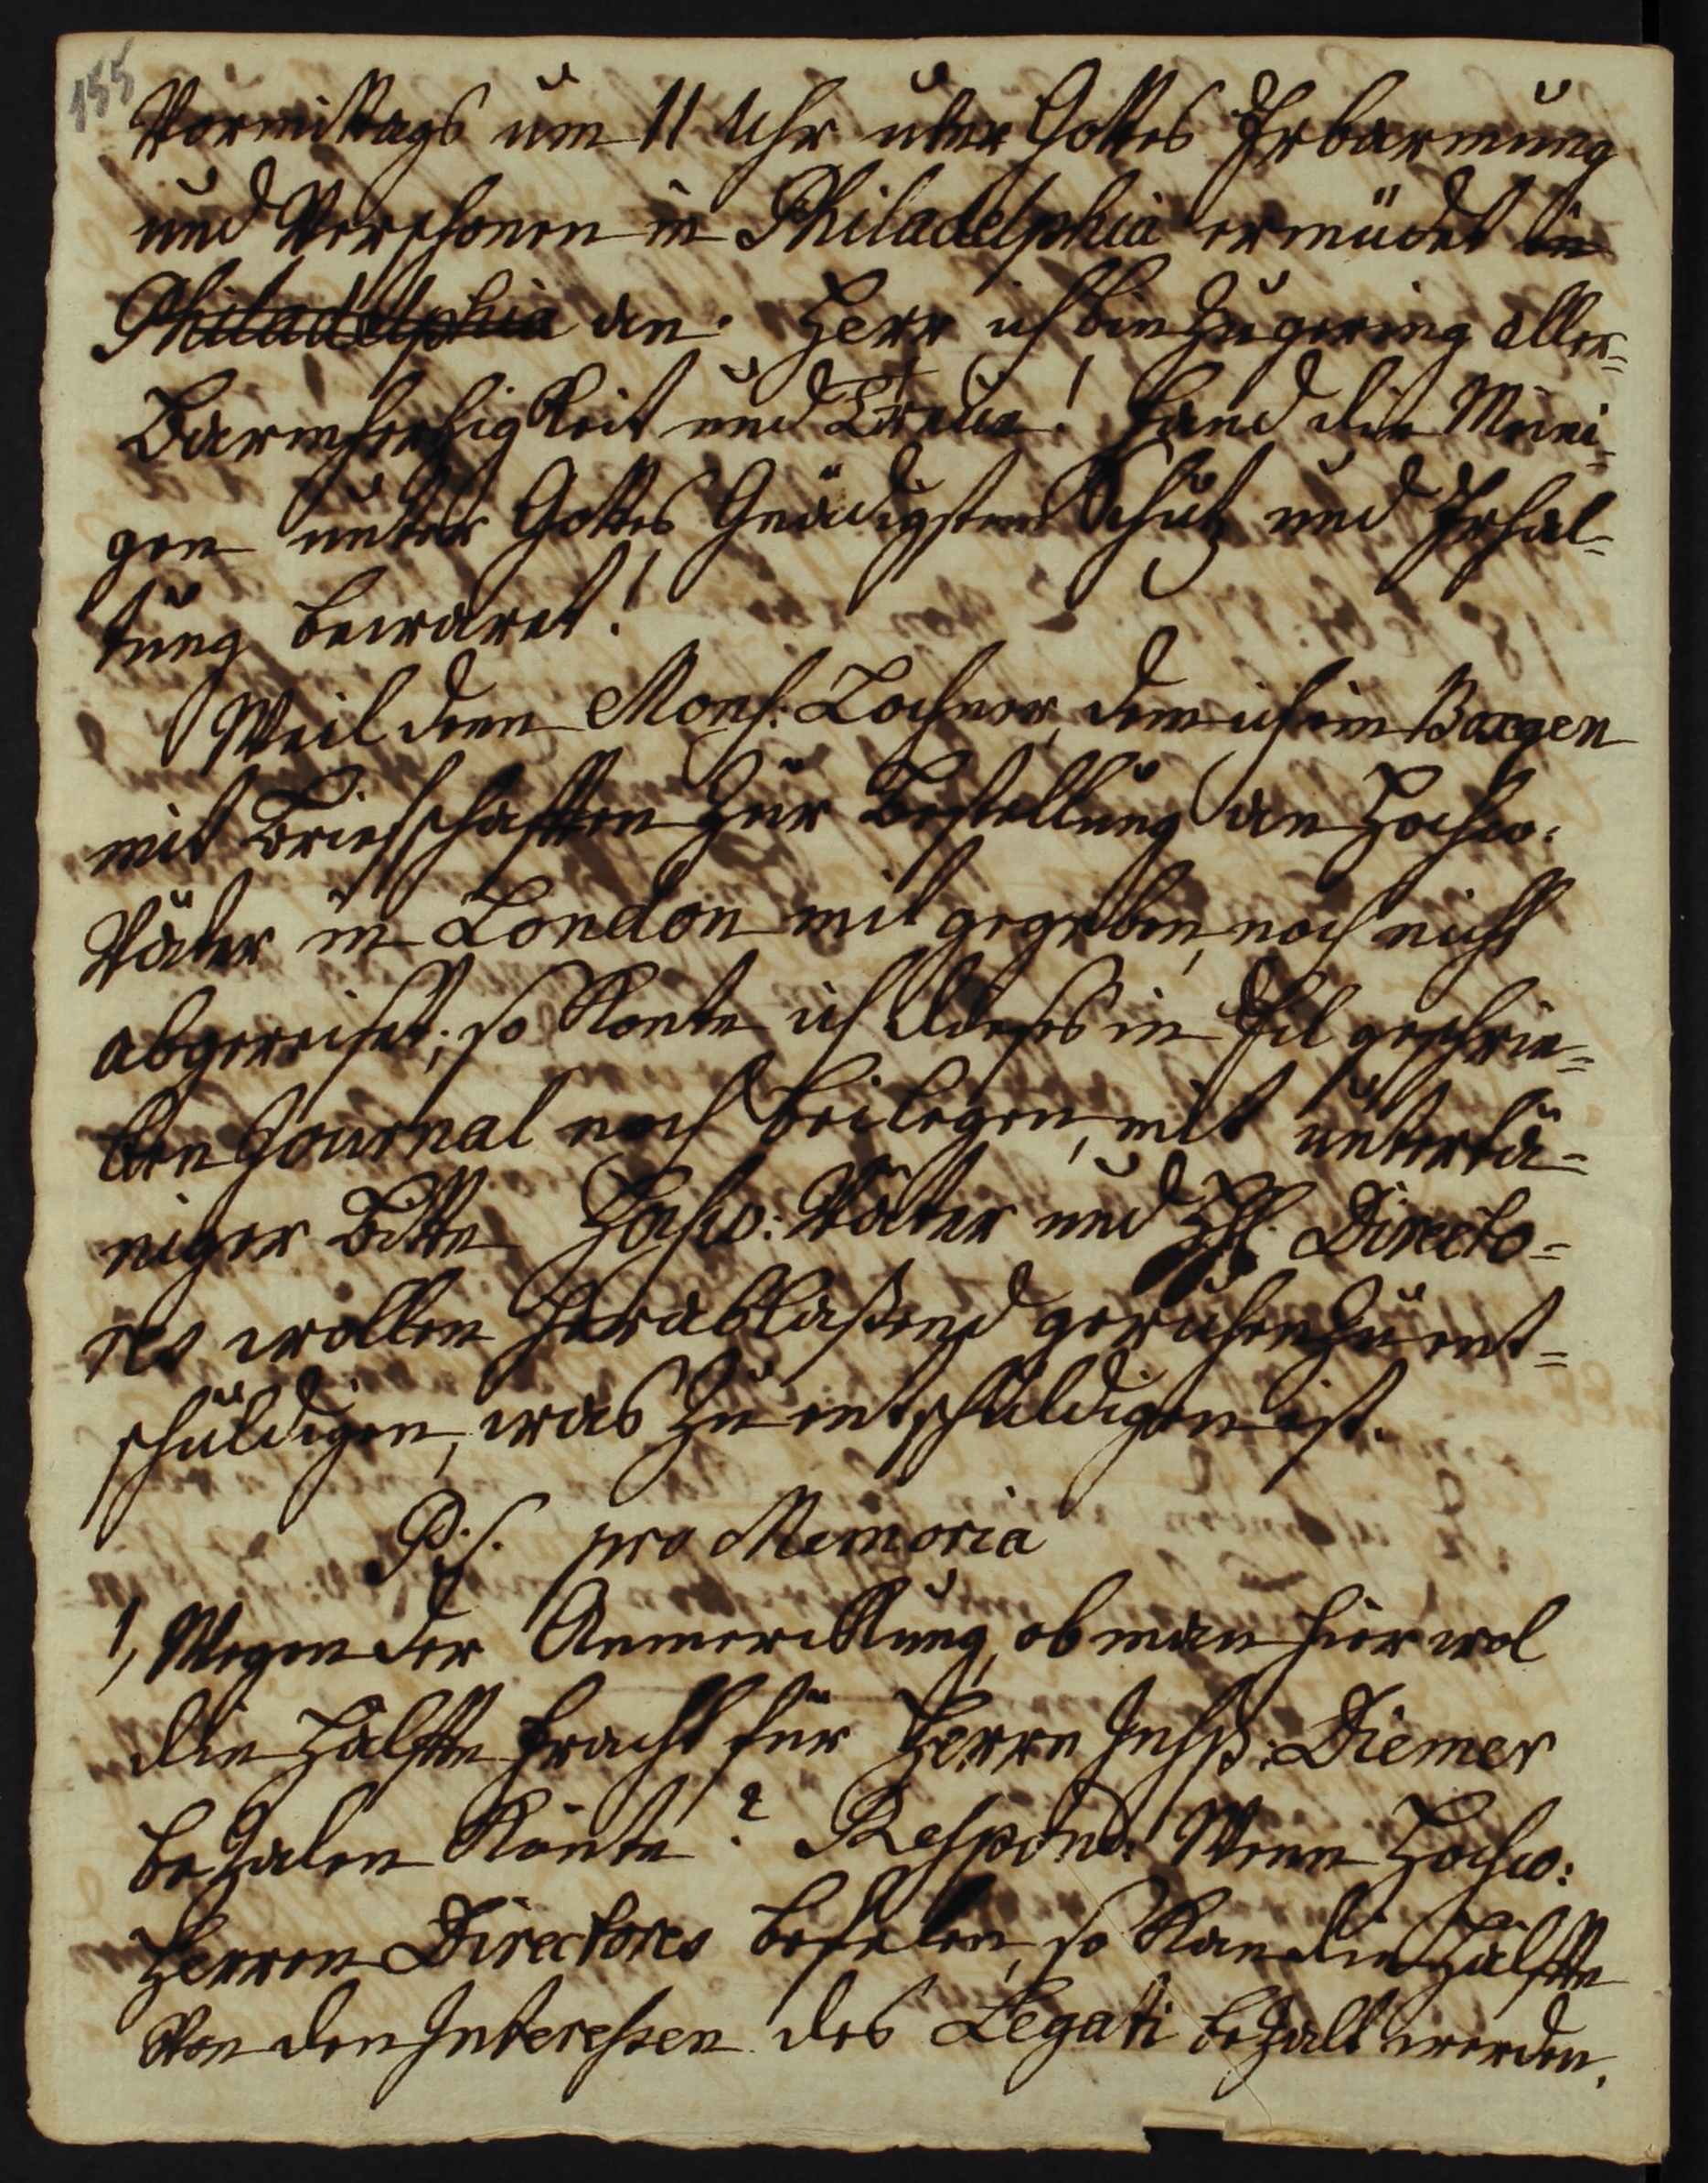 155
Vormittags um 11 Uhr unter Gottes Erbarmung
und Verschonen in Philadelphia ermüdet in
Philadelphia an. Herr ich bin zu gering aller-
Barmhertzigkeit und Treue! fand die Meini-
gen unter Gottes Gnädigstem Schutz und Erhal-
tung bewaret!
Weil denn Mons: Lochner, dem ich ein
mit Briefschafften zur Bestellung an Hochw:
Väter in London mit gegeben, noch nicht
abgereiset; so konte ich dieses in Eil geschrie-
ben Journal noch beilegen, mit untertä-
niger Bitte Hochw: Väter und HH. Directo-
res wollen herablaßend geruhen zu ent-
schuldigen, was zu entschuldigen ist.
P.S. pro Memoria
1, Wegen der Anmerckung, ob man hier wol
die Hälfte Fracht für Herrn Insp: Diemer
bezalen könte? Respond: Wenn Hochw:
Herren Directores befelen, so kan die Hälfte
von den Interessen des Legati bezalt werden.